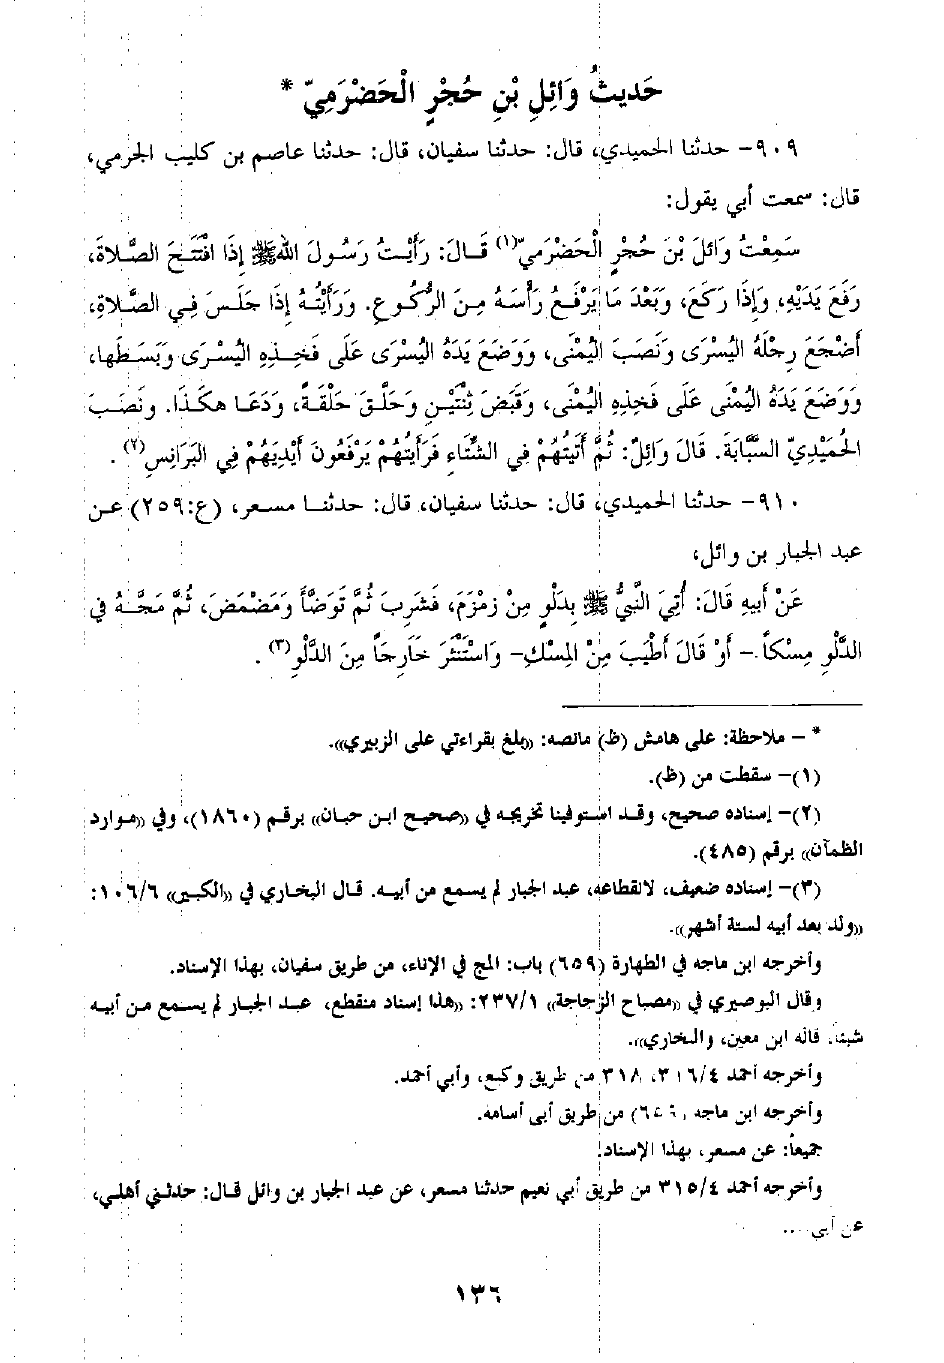 حَديثُ وَائِلِ بْنِ حُجْرٍ الْحَضْرَمِيّ *
٩٠٩- حدثنا الحميدي، قال: حدثنا سفيان، قال: حدثنا عاصم بن كليب الجرمي،
قال: سمعت أبي يقول:
سَمِعْتُ وَائلَ بْنَ حُجْرٍ الْحَضْرَميّ(١) قَالَ: رَأَيْتُ رَسُولَ اللهﷺ إذَا افْتَتَحَ الصَّلاةَ،
رَفَعَ يَدَيْهِ، وَإِذَا رَكَعَ، وَبَعْدَ مَا يَرْفَعُ رَأْسَهُ مِنَ الرُّكُوعِ. وَرَأَيْتُهُ إذَا جَلَسَ فِي الصَّلاةِ،
أَضْجَعَ رِجْلَهُ الْيُسْرَى وَنَصَبَ الْيُمْنَى، وَوَضَعَ يَدَهُ الْيُسْرَى عَلَى فَخِذِهِ الْيُسْرَى وَبَسَطَها،
وَوَضَعَ يَدَهُ الْيُمْنَى عَلَى فَخِذِهِ الْيُمْنَى، وَقَبَضَ ثِنْتَيْنِ وَحَلَّقَ حَلْقَةً، وَدَعَا هكَذَا. ونَصَبَ
الْحُمَيْدِيّ السَّبَّابَةَ. قَالَ وَائِلٌ: ثُمَّ أَتَيْتُهُمْ فِي الشِّتَاءِ فَرَأَيْتُهُمْ يَرْفَعُونَ أَيْدِيَهُمْ فِي الْبَرَانِسِ(٢).
٩١٠- حدثنا الحميدي، قال: حدثنا سفيان، قال: حدثنا مسعر، (ع:٢٥٩) عن
عبد الجبار بن وائل،
عَنْ أَبيهِ قَالَ: أُتِيَ النَّبيُّ ﷺ بِدَلْوٍ مِنْ زمْزَمَ، فَشَرِبَ ثُمَّ تَوَضَّأَ وَمَضْمَضَ، ثُمَّ مَجَّهُ فِي
الدَّلْوِ مِسْكاً.– أَوْ قَالَ أَطْيَبَ مِنْ الْمِسْكِ– وَاسْتَنْثَرَ خَارِجاً مِنَ الدَّلْوِ(٣).
* – ملاحظة: على هامش (ظ) مانصه: ((بلغ بقراءتي على الزبيري)).
(١)– سقطت من (ظ).
(٢)– إسناده صحيح، وقد استوفينا تخريجه في ((صحيح ابن حبان)) برقم (١٨٦٠)، وفي ((موارد
الظمآن)) برقم (٤٨٥).
(٣)– إسناده ضعيف، لانقطاعه، عبد الجبار لم يسمع من أبيه. قال البخاري في ((الكبير)) ١٠٦/٦:
((ولد بعد أبيه لستة أشهر)).
وأخرجه ابن ماجه في الطهارة (٦٥٩) باب: المج في الإناء، من طريق سفيان، بهذا الإسناد.
وقال البوصيري في ((مصباح الزجاجة)) ٢٣٧/١: ((هذا إسناد منقطع، عبد الجبار لم يسمع من أبيه
شيئاً. قاله ابن معين، والبخاري)).
وأخرجه أحمد ٣١٦/٤، ٣١٨ من طريق وكيع، وأبي أحمد.
وأخرجه ابن ماجه من طريق أبي أسامه.
جميعاً: عن مسعر، بهذا الإسناد.
وأخرجه أحمد ٣١٥/٤ من طريق أبي نعيم حدثنا مسعر، عن عبد الجبار بن وائل قال: حدثني أهلي،
عن أبي....
١٣٦